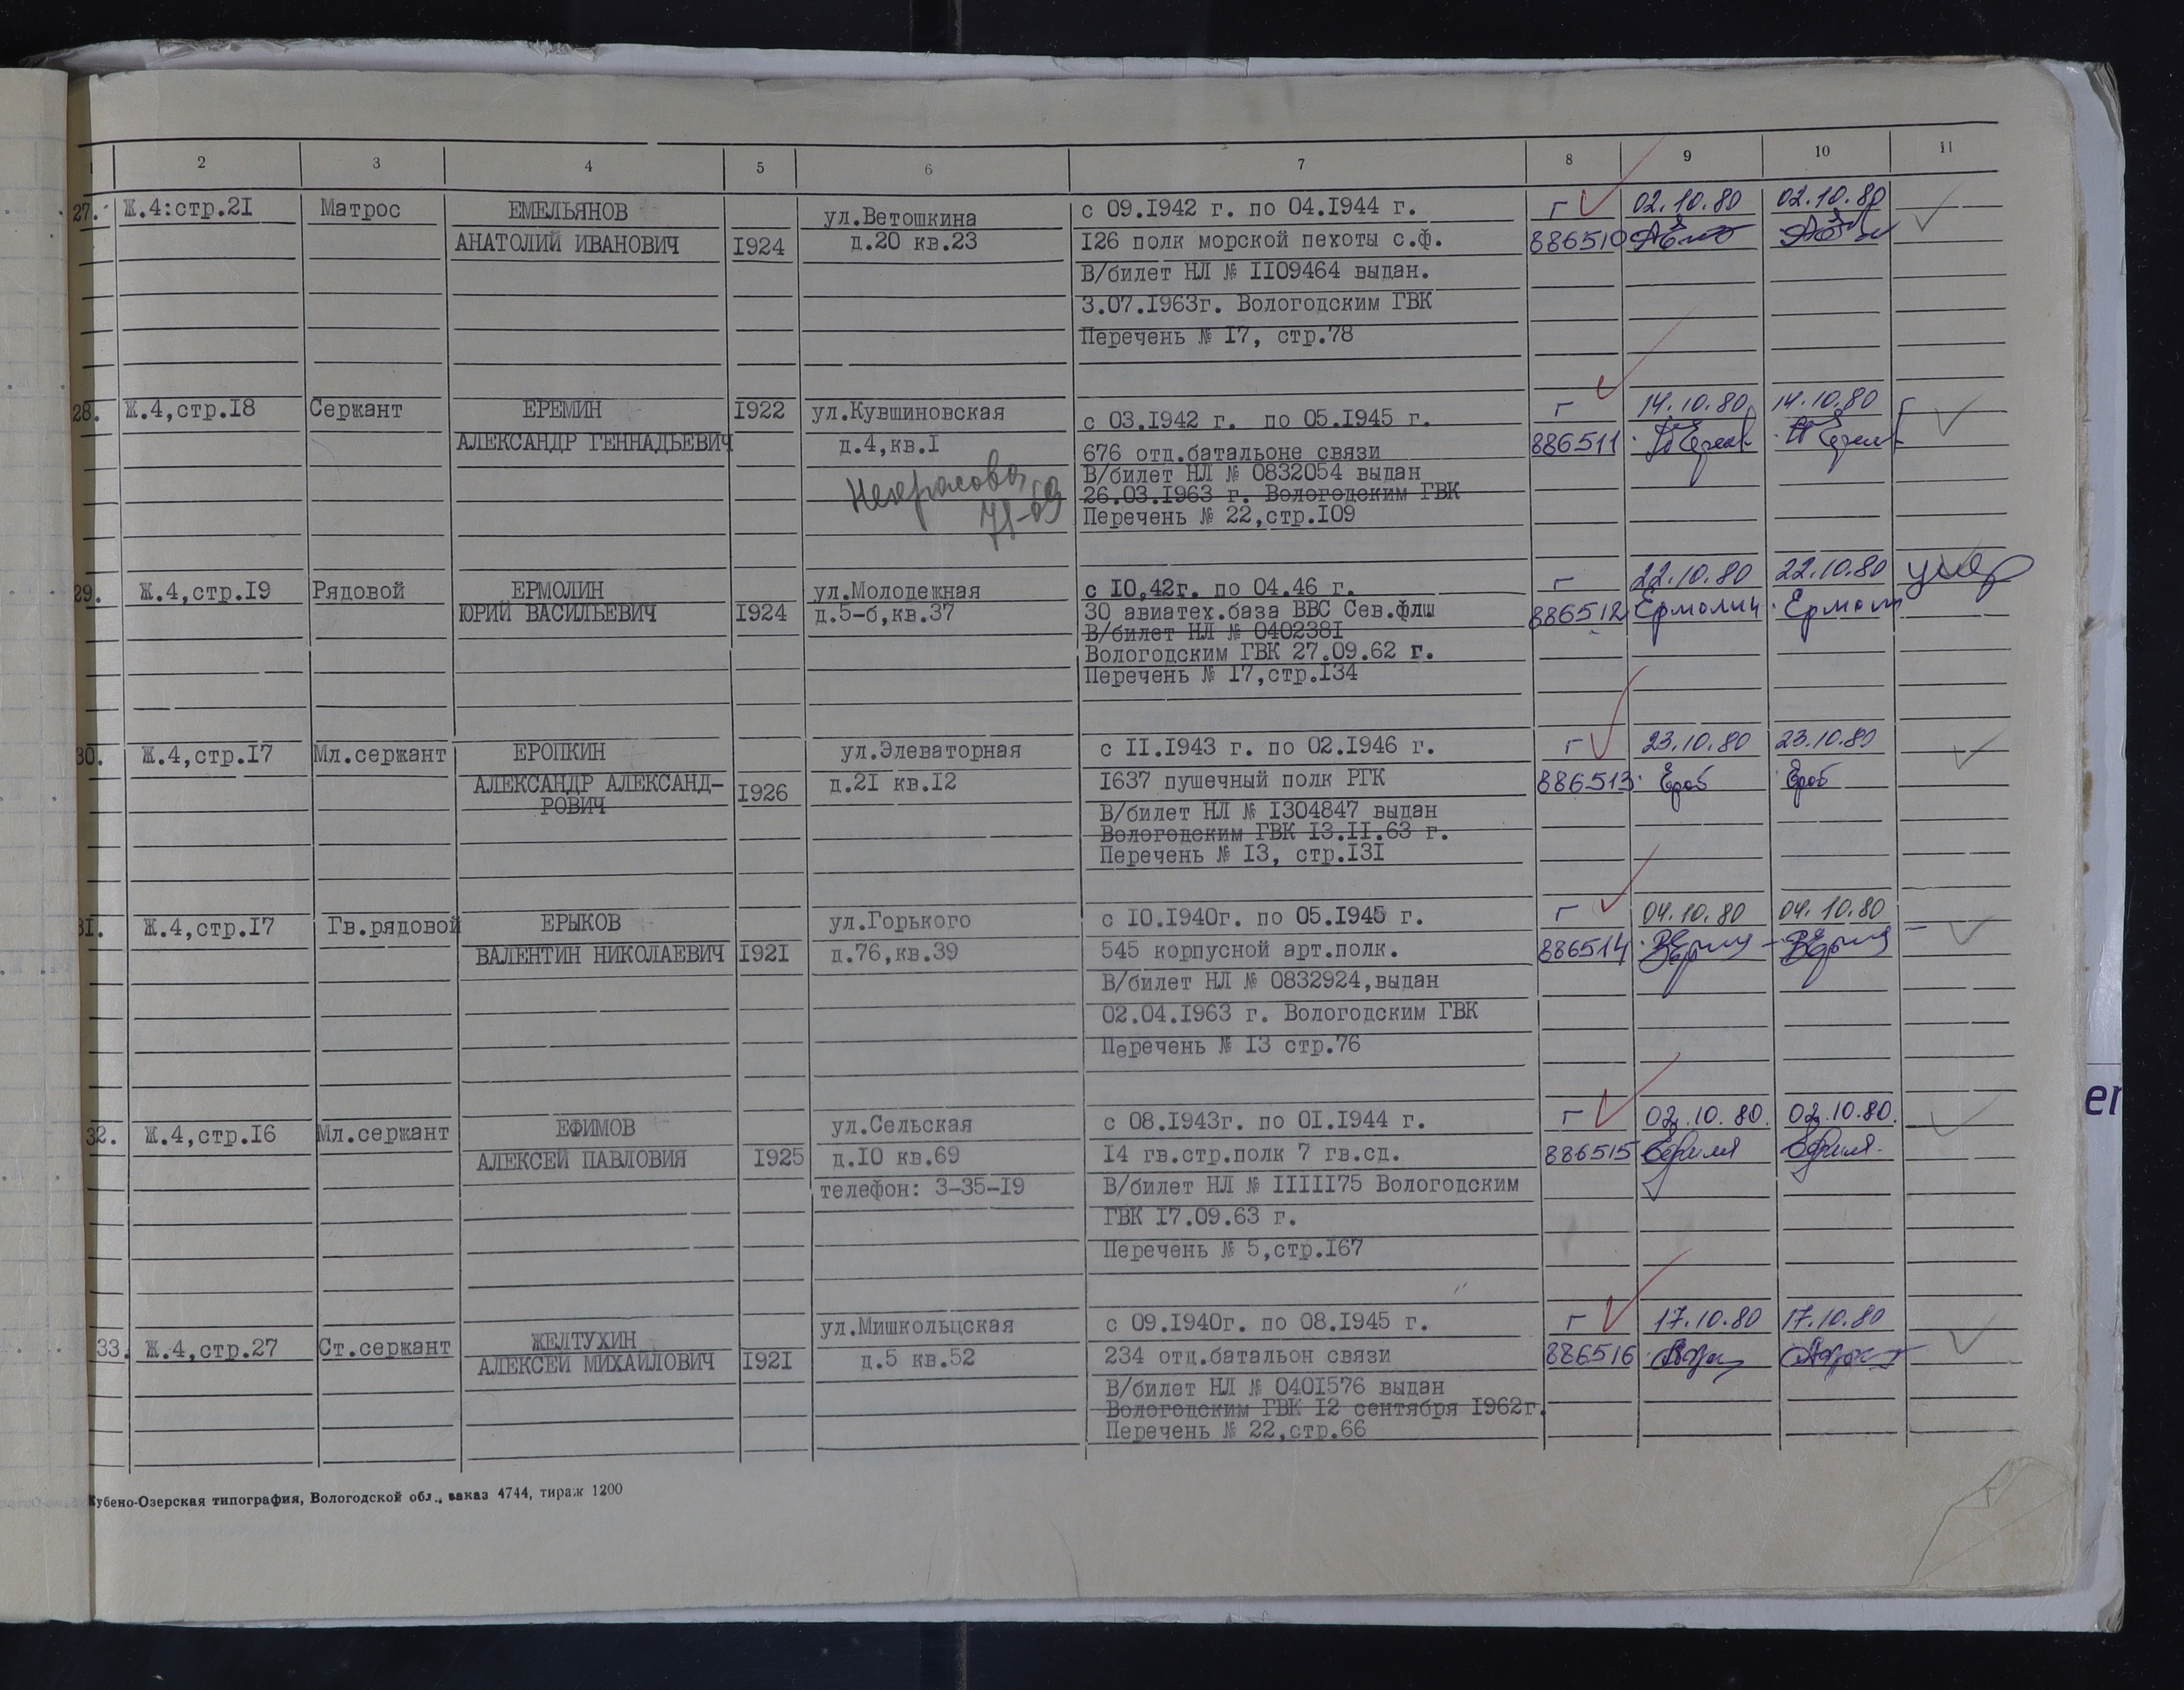 1 2 3 4 5 6 7 8 9 10 11
27. Ж.4:стр.21 Матрос ЕМЕЛЬЯНОВ ул.Ветошкина с 09.1942 г. по 04.1944 г. г 02.10.80 02.10.80
АНАТОЛИЙ ИВАНОВИЧ 1924 д.20 кв.23 126 полк морской пехоты с.ф. 886510
В/билет НЛ № 1109464 выдан.
3.07.1963г. Вологодским ГВК
Перечень № 17, стр.78
28. Ж.4,стр.18 Сержант ЕРЕМИН 1922 ул.Кувшиновская с 03.1942 г. по 05.1945 г. г 14.10.80 14.10.80
АЛЕКСАНДР ГЕННАДЬЕВИЧ д.4,кв.1 676 отд.батальоне связи 886511
В/билет НЛ № 0832054 выдан
Некрасова 26.03.1963 г. Вологодским ГВК
71-69 Перечень № 22,стр.109
29. Ж.4,стр.19 Рядовой ЕРМОЛИН ул.Молодежная с 10,42г. по 04.46 г. г 22.10.80 22.10.80 умер
ЮРИЙ ВАСИЛЬЕВИЧ 1924 д.5-б,кв.37 30 авиатех.база ВВС Сев.флш 886512 Ермолин
В/билет НЛ № 0402381
Вологодским ГВК 27.09.62 г.
Перечень № 17,стр.134
30. Ж.4,стр.17 Мл.сержант ЕРОПКИН ул.Элеваторная с 11.1943 г. по 02.1946 г. г 23.10.80 23.10.80
АЛЕКСАНДР АЛЕКСАНД- 1926 д.21 кв.12 1637 пушечный полк РГК 886513
РОВИЧ
В/билет НЛ № 1304847 выдан
Вологодским ГВК 13.11.63 г.
Перечень № 13, стр.131
31. Ж.4,стр.17 Гв.рядовой ЕРЫКОВ ул.Горького с 10.1940г. по 05.1945 г. г 04.10.80 04.10.80
ВАЛЕНТИН НИКОЛАЕВИЧ 1921 д.76,кв.39 545 корпусной арт.полк. 886514
В/билет НЛ № 0832924,выдан
02.04.1963 г. Вологодским ГВК
Перечень № 13 стр.76
32. Ж.4,стр.16 Мл.сержант ЕФИМОВ ул.Сельская с 08.1943г. по 01.1944 г. г 02.10.80. 02.10.80.
АЛЕКСЕЙ ПАВЛОВИЯ 1925 д.10 кв.69 14 гв.стр.полк 7 гв.сд. 886515
телефон: 3-35-19 В/билет НЛ № 1111175 Вологодским
ГВК 17.09.63 г.
Перечень № 5,стр.167
33. Ж.4,стр.27 Ст.сержант ЖЕЛТУХИН ул.Мишкольцская с 09.1940г. по 08.1945 г. г 17.10.80 17.10.80
АЛЕКСЕЙ МИХАЙЛОВИЧ 1921 д.5 кв.52 234 отд.батальон связи 886516
В/билет НЛ № 0401576 выдан
Вологодским ГВК 12 сентября 1962г.
Перечень № 22,стр.66
Кубено-Озерская типография, Вологодской обл., заказ 4744, тираж 1200
er